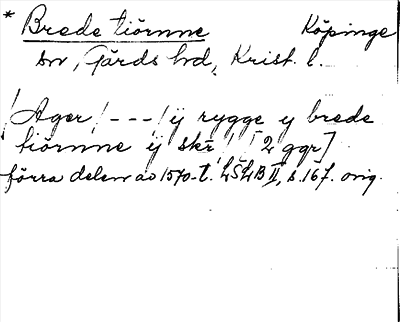 * Brede tiörnne Köpinge
sn, Gärds hd, Krist. l.
/Ager/ --- / ÿ rygge y brede
tiörnne ÿ skr / / [2 ggr]
förra delen av 1570-t. LSLB II, s. 167. orig.